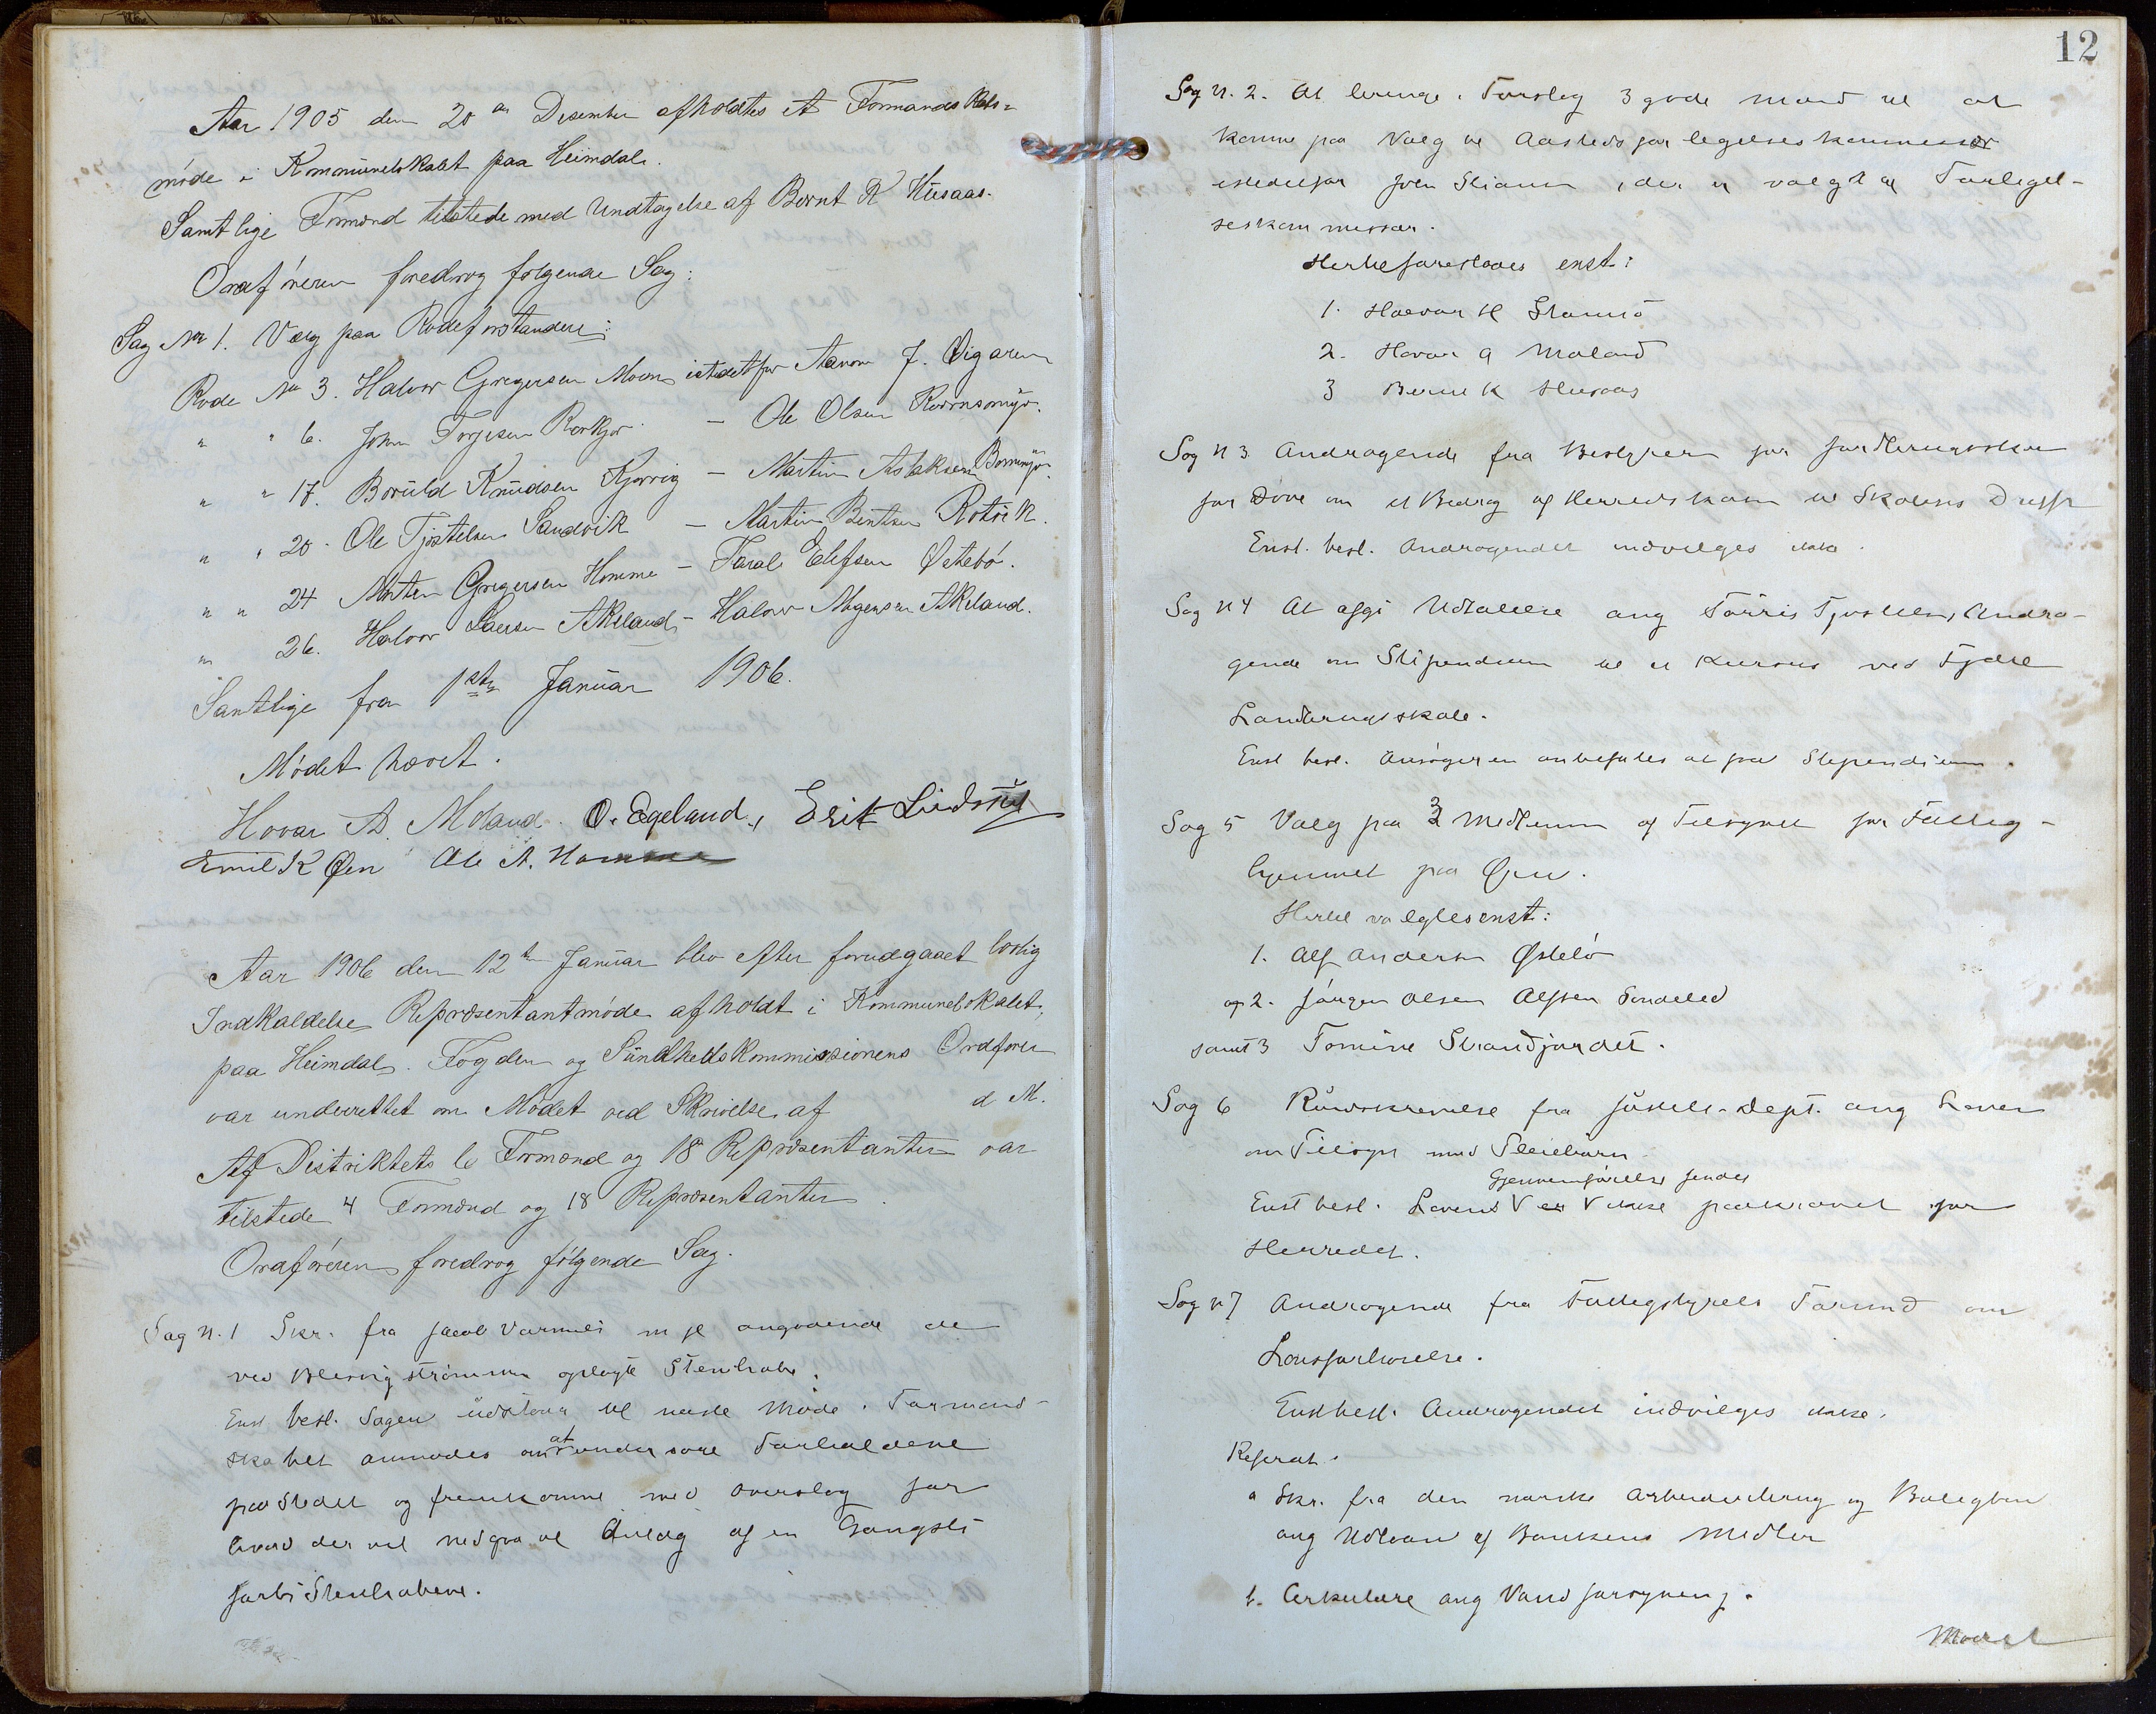 Aar 1905 den 20de Desember afholdtes et Formandskabs-
møde i Kommunelokalet paa Heimdal.
Samtlige Formænd tilstede med Undtagelse af Bernt K Husaas.
Ordføreren foredrog følgende Sag:
Sag No 1. Valg paa Rodeforstandere:
Rode No 3. Halvor Gregersen Moen istedetfor Aanon J. Øigaren
" " 6. John Torjesen Rørkjær - Ole Olsen
" " 17. Boruld Knudsen Kjørvig - Martin Aslaksen
" " 20. Ole Tjøstelsen Sandvik - Martin Bentsen Rotvik.
" " 24 Morten Gregersen Homme - Taral Elefsen Østebø.
" 26. Halvor Larsen Akeland - Halvor Mogensen Akeland.
Samtlige fra 1ste Januar 1906.
Mødet hævet.
Hovar A. Moland. O. Egeland, Erik Lindstøl
Emil K Øen Ole A. Homme
Aar 1906 den 12te Januar blev efter forudgaaet lovlig
Indkaldelse Repræsentantmøde afholdt i Kommunelokalet,
paa Heimdal. Fogden og Sundhedskommissionens Ordfører
var underrettet om Mødet ved Skrivelse af d M.
Af Distriktets 6 Formænd og 18 Repræsentanter var
tilstede 4 Formænd og 18 Repræsentanter.
Ordføreren foredrog følgende Sag.
Sag N. 1 Skr. fra Jacob Varmes m fl angaaende de
ved strømmen oplagte Stenhobe.
Enst besl. Sagen udstaar til næste Møde. Formand-
skabet anmodes om at undersøge Forholdene
paa Stedet og fremkomme med Overslag for
hvad der vil medgaa til Anlæg af en Gangsti
forbi Stenhobene.
12
Sag N. 2. At bringe i Forslag 3 gode Mænd til at
komme paa Valg til Aasteds for legelseskommissær
istedetfor Sven Stiansen, der er valgt til Forligel-
seskommissær.
Hertil foresloaes enst:
1. Halvor H Stamsø
2. Hovar A Moland
3 Bernt K Husaas
Sag N 3. Andragende fra Bestyreren for forskolen
for Døve om et Bidrag af Herredskassen til Skolens Drift
Enst. besl. Andragendet indvilges ikke.
Sag N 4 At afgi Udtalelse ang Torris Tjostelsens Andra-
gende om Stipendium til et Kursus ved Fjære
Landbrugsskole.
Enst besl. Ansøgeren anbefales at faa Stipendium.
Sag 5 Valg paa 3 Medlemmer af Tilsynet for Fattig-
hjemmet paa Øen.
Hertil valgtes enst:
1. Alf Andersen Østebø
og 2. Jørgen Olsen Alfsen Søndeled
samt 3 Tomine Strandjordet.
Sag 6 Rundskrivelse fra Justits-Dept. ang Loven
om Tilsyn med Pleiebørn
Gjennemførelse findes
Enst besl. Lovens V er V ikke paakrævet for
Herredet.
Sag N 7 Andragende fra Fattigstyrets Formand om
Lønsforhøielse.
Enst besl. Andragendet indvilges ikke.
Referat.
a Skr. fra den norske Arbeiderbrug og Boligbank
ang Udlaan af Bankens Midler
b. Cirkulære ang Vandforsyning.
Mødet